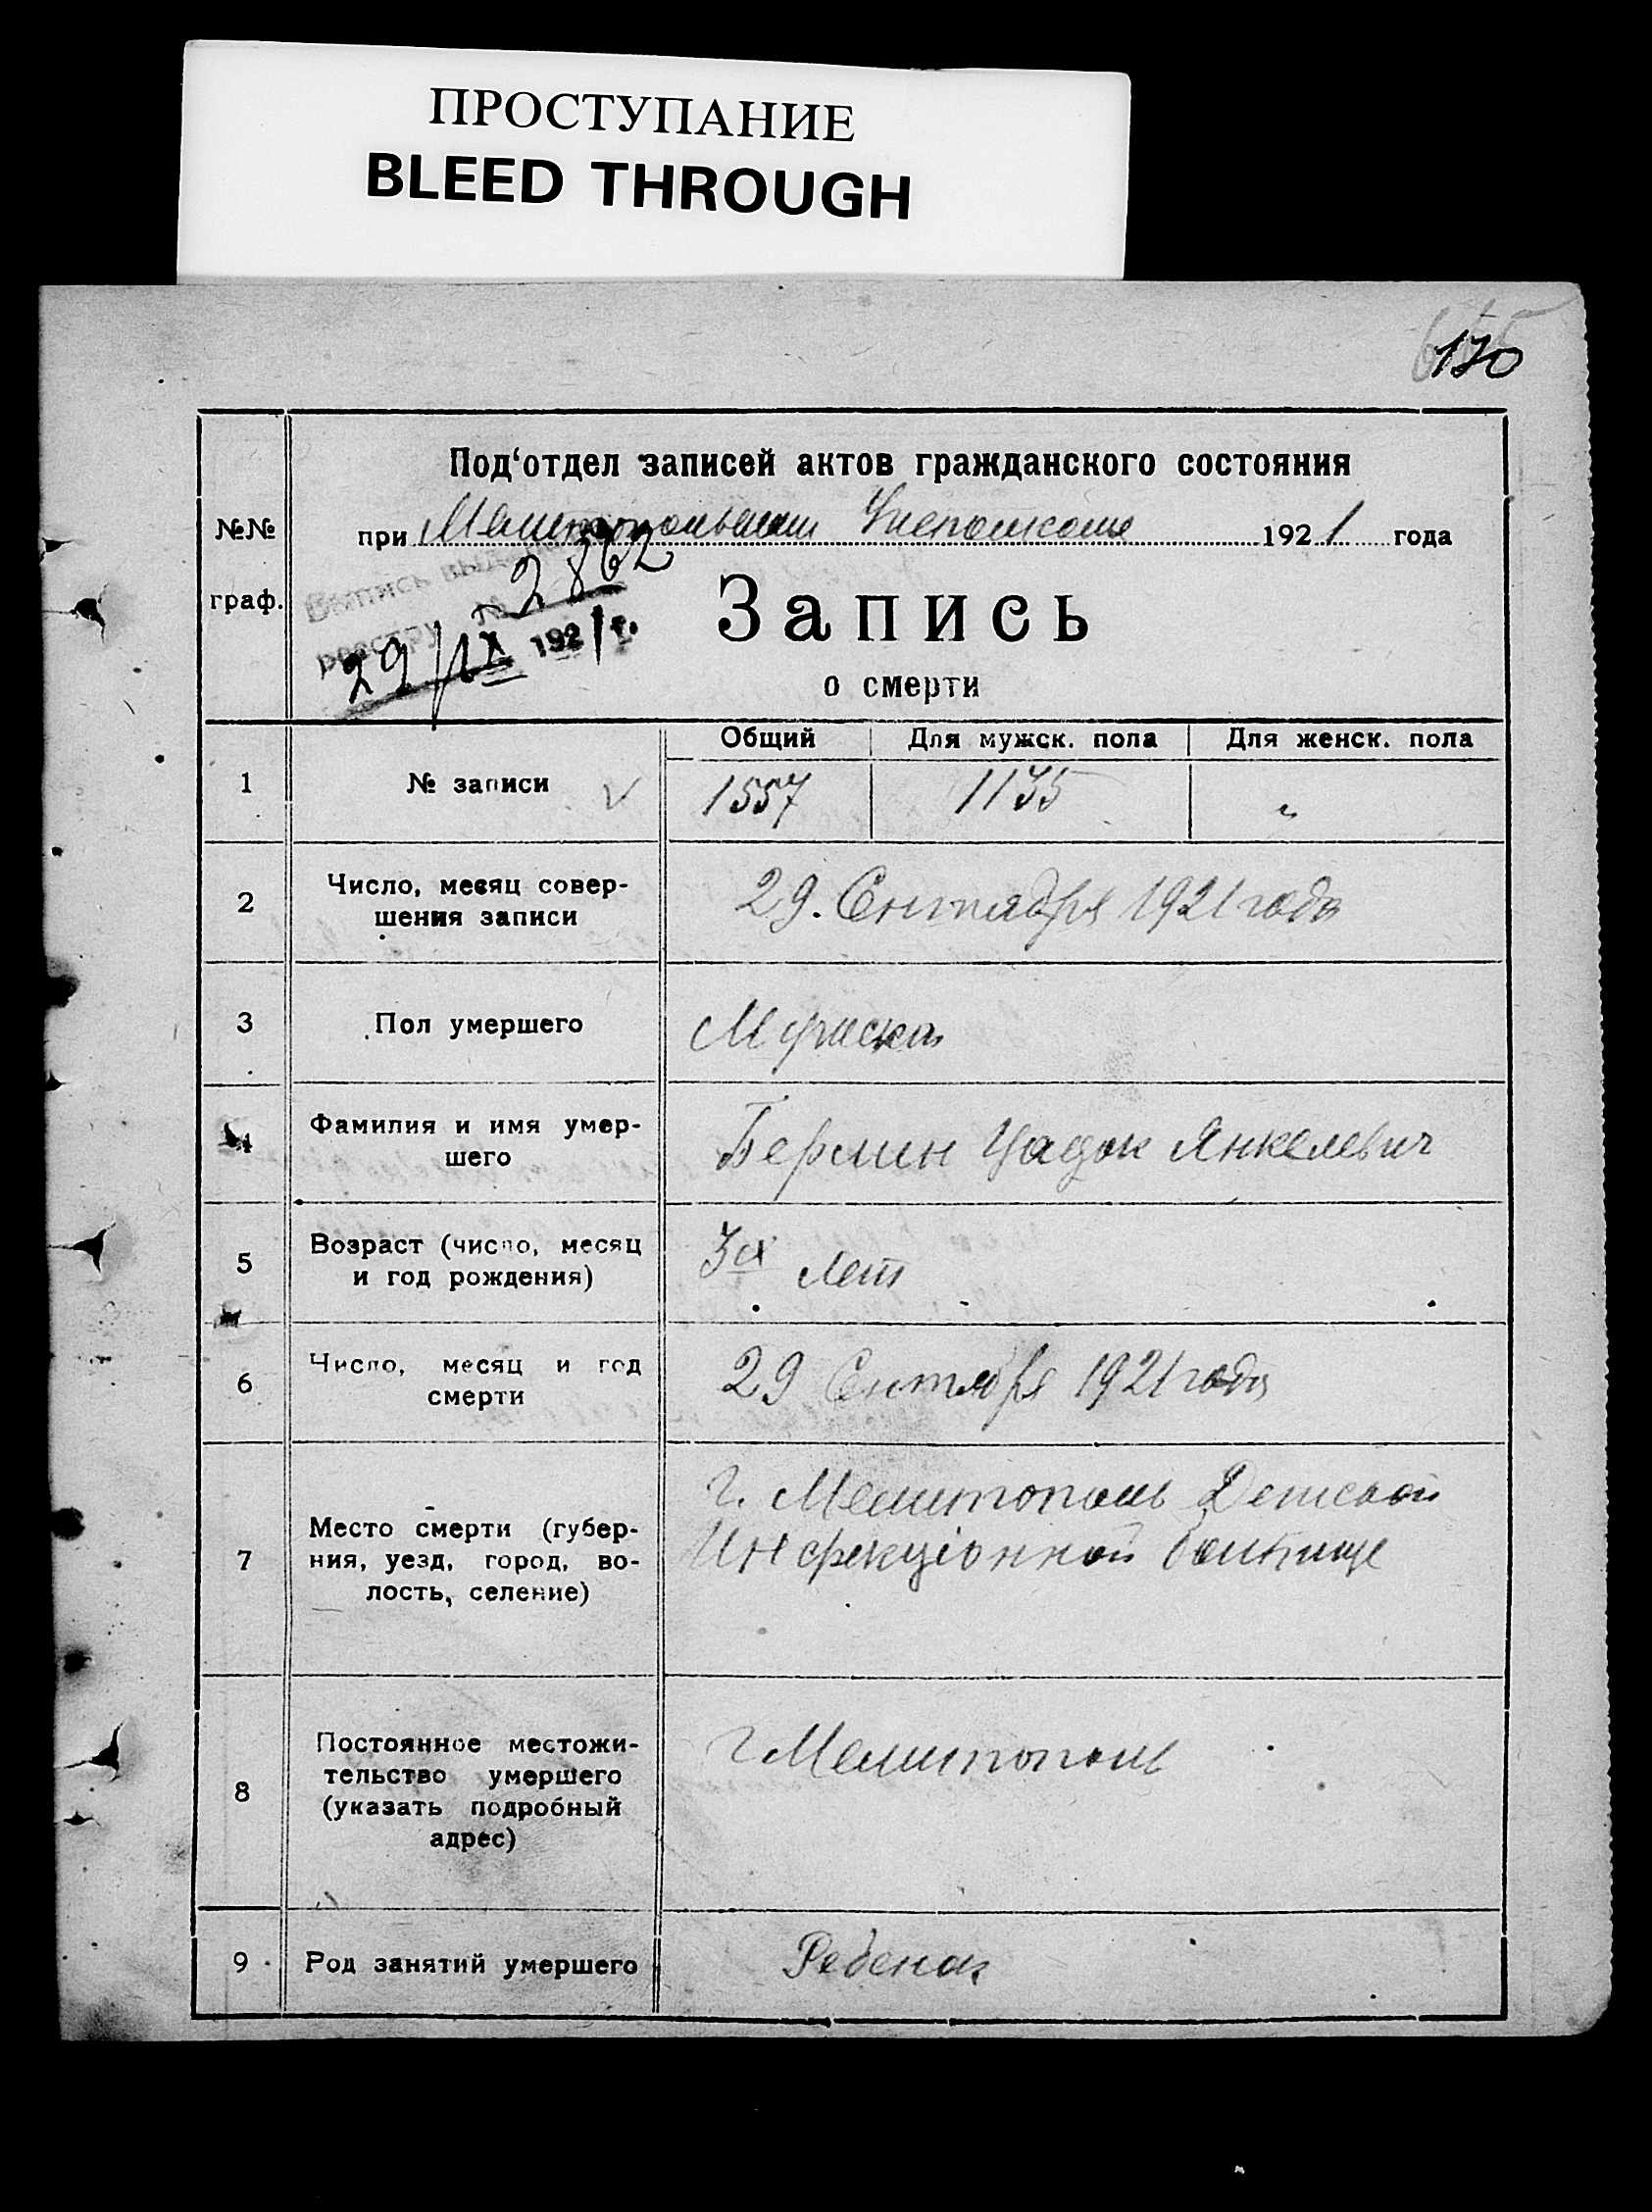 ПРОСТУПАНИЕ
BLEED THROUGH
170
№№
граф.
Под‘отдел записей актов гражданского состояния
при Мелитопольском 1921 года
Выпись выдана
реестру № 2862
29/IX 1921 г.
Запись
о смерти
Общий Для мужск. пола Для женск. пола
1 № записи 1557 1135 "
2 Число, месяц совер-
шения записи
29. Сентября 1921 года
3 Пол умершего
Мужска
4 Фамилия и имя умер-
шего
Берлин Цадок Янкелевич
5 Возраст (число, месяц
и год рождения)
3х лет
6 Число, месяц и год
смерти
29 Сентября 1921 года
7 Место смерти (губер-
ния, уезд, город, во-
лость, селение)
г. Мелитополь Детской
Инфекціонной больнице
8 Постоянное местожи-
тельство умершего
(указать подробный
адрес)
г Мелитополь
9 Род занятий умершего
Ребенок